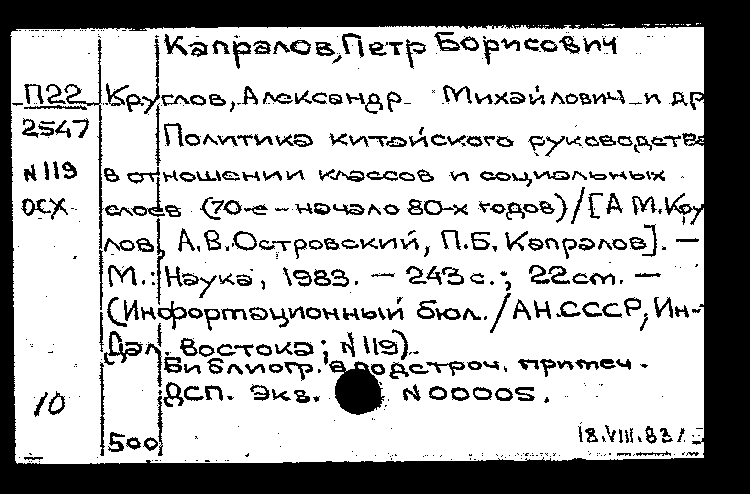 Капралов, Петр Борисович
П22 Круглов, Александр Михайлович и др
2547 Политика китайского руководства
N119 в отношении классов и социальных
ОСХ слоев (70-е - начало 80-х годов) / [А М.Кру
лов, А.В.Островский, П.Б. Капралов]. —
М.: Наука, 1983. — 243 с.; 22 ст. —
(Информационный бюл. / АН.СССР, Ин-т
Дал. востока; N119).
Библиогр. в подстроч. примеч.
10 ДСП. Экз. N 00005.
500 18.VIII.83 г.